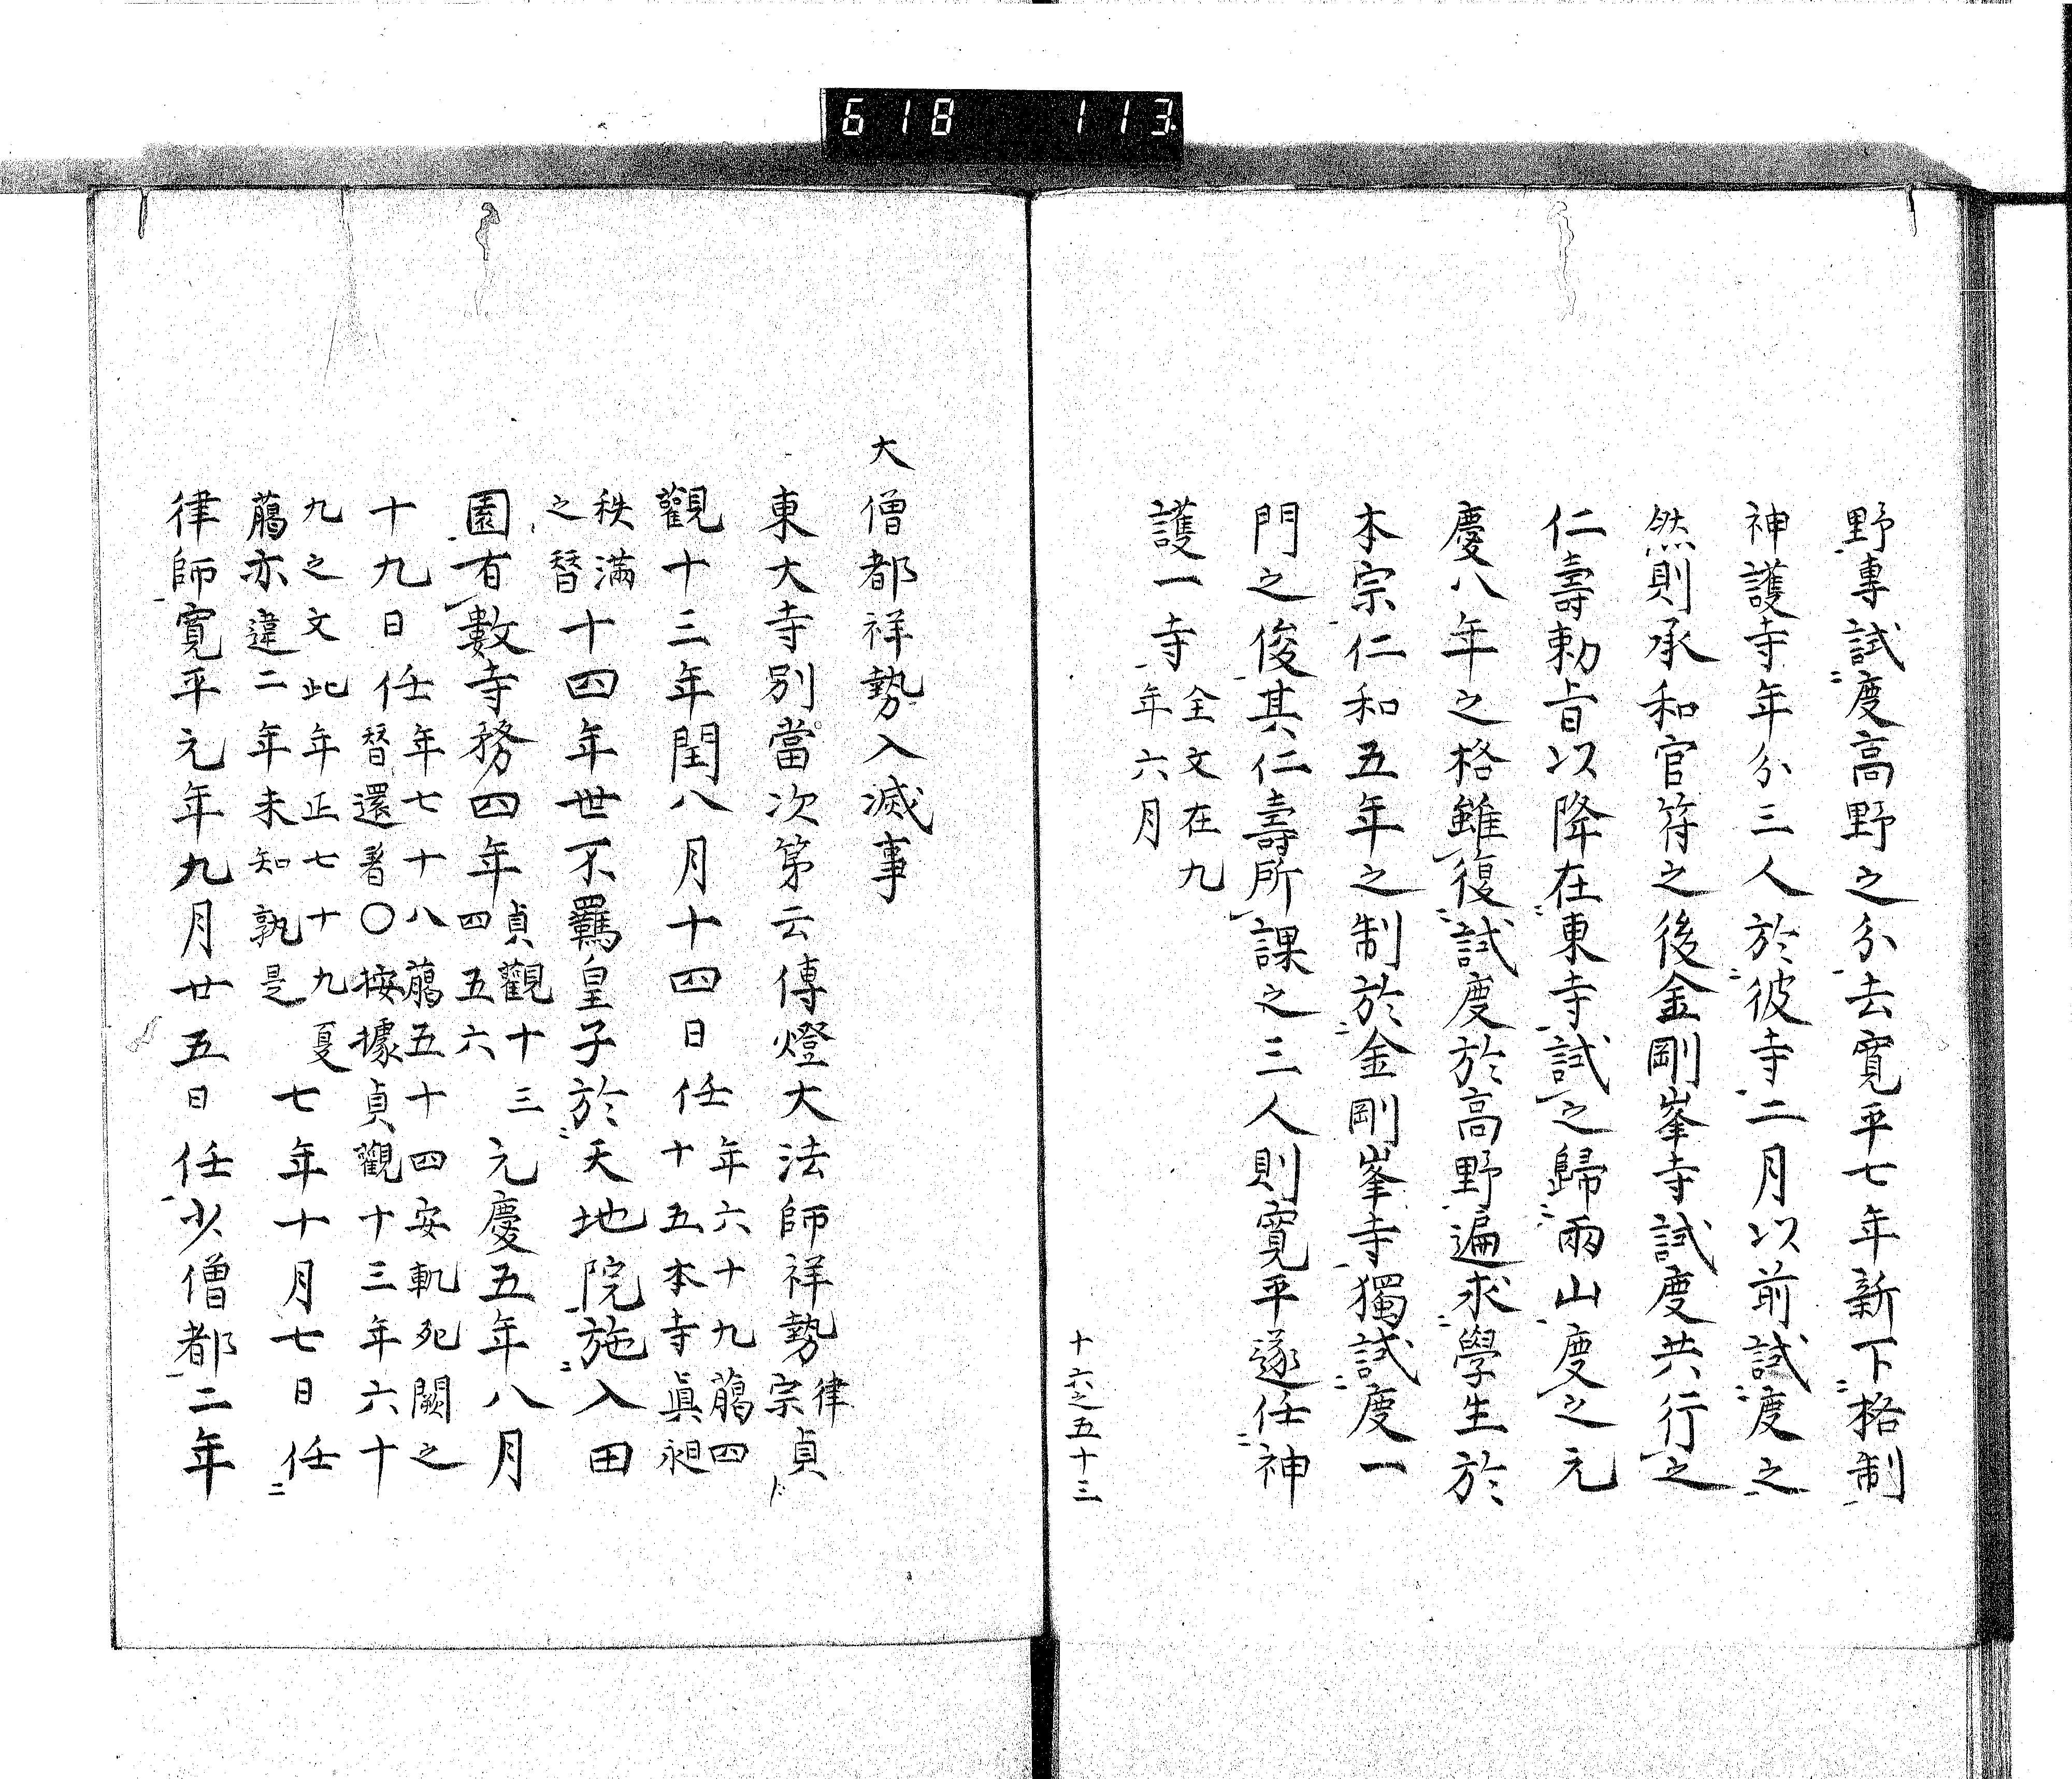 618 113
野專試度高野之分去寬平七年新下格制
神護寺年分三人於彼寺二月以前試度之
然則承和官符之後金剛峯寺試度共行之
仁壽勅旨以降在東寺試之歸兩山度之元
慶八年之格雖復試度於高野遍求學生於
本宗仁和五年之制於金剛峯寺獨試度一
門之俊其仁壽所課之三人則寬平遂任神
護一寺全文在九
年六月
十六之五十三
大僧都祥勢入滅事
東大寺別當次第云傳燈大法師祥勢律
宗貞
觀十三年閏八月十四日任年六十九﨟四
十五本寺眞昶
秩滿
之替十四年世不羈皇子於天地院施入田
園有數寺務四年貞觀十三
四五六元慶五年八月
十九日任年七十八﨟五十四安軌死闕之
替還着〇按據貞觀十三年六十
九之文此年正七十九夏
﨟亦違二年未知孰是七年十月七日任
律師寬平元年九月廿五日任少僧都二年